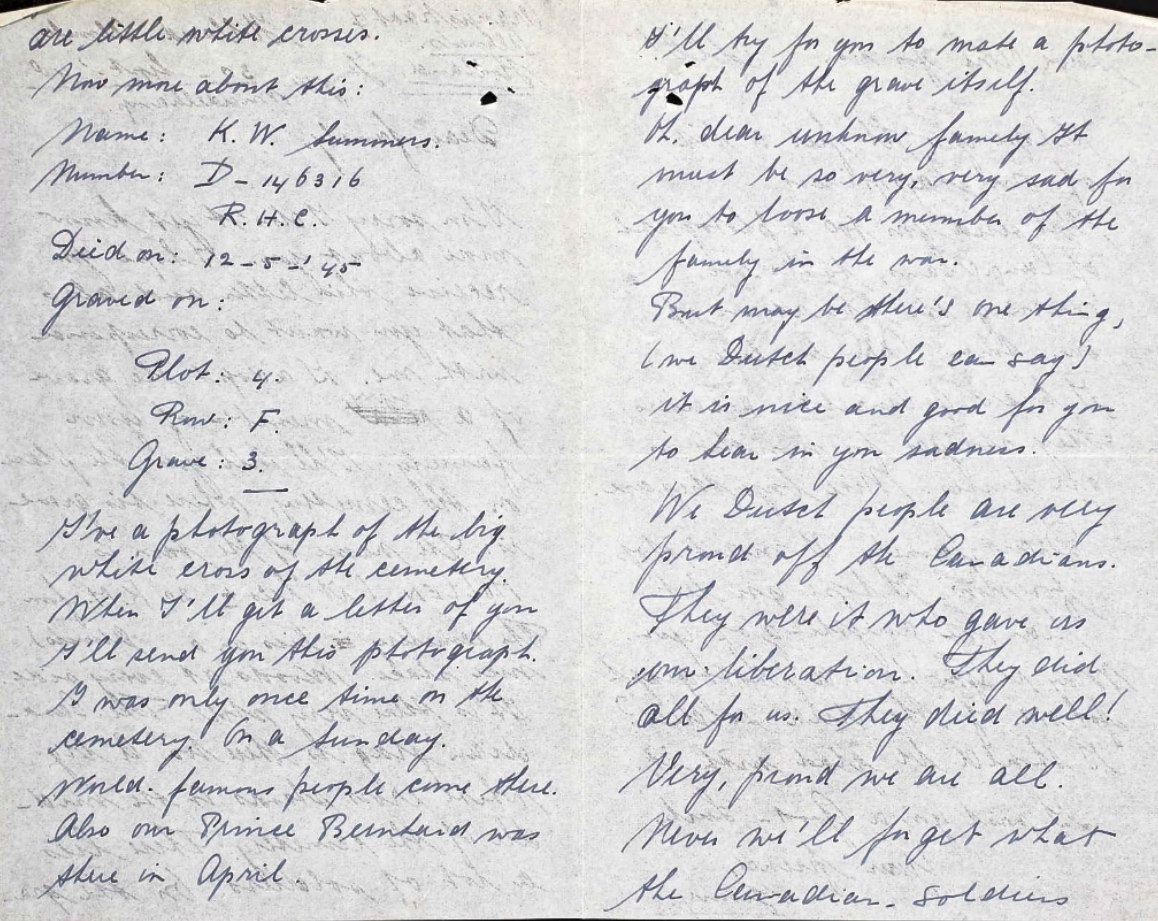 are little white crosses.
Now more about this:
Name: K.W. Summers.
Number: D-146316
R.H.C.
Died on: 12-5-'45
Graved on:
Plot: 4.
Row: F.
Grave: 3.
I've a photograph of the big
white cross of the cemetery.
When I'll get a letter of you
I'll send you this photograph.
I was only once time on the
cemetery. On a Sunday.
World-famous people come there.
Also our Prince Bernhard was
there in April.
I'll try for you to mate a photo-
graph of the grave itself.
Oh, dear unknow family It
must be so very, very sad for
you to loose a member of the
family in the war.
But may be there's one thing,
(we Dutch people can say)
it is nice and good for you
to hear in you sadness.
We Dutch people are very
proud off the Canadians.
They were it who gave us
our liberation. They did
all for us. They died well!
Very, proud we are all.
Never we'll forget what
the Canadian-soldiers